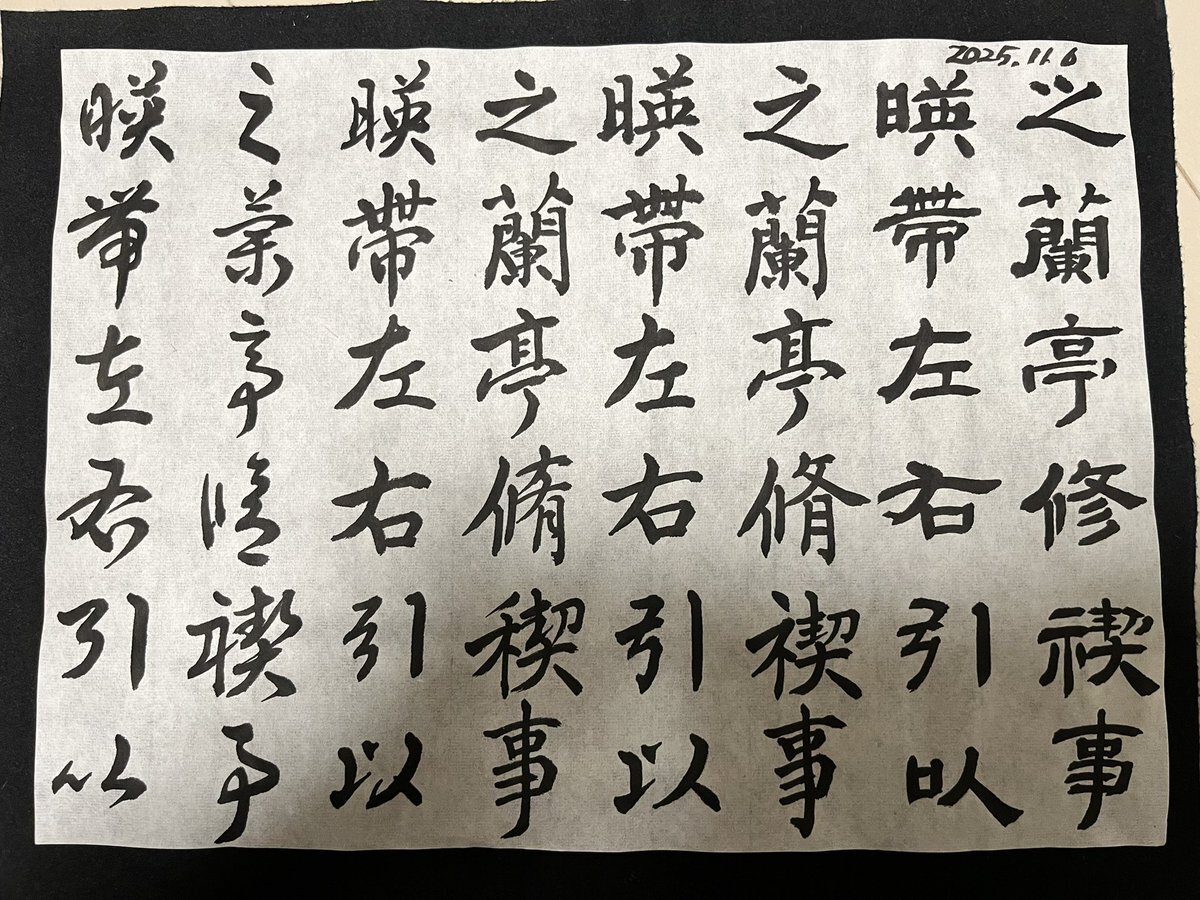 2025.11.6
之蘭亭修禊事
暎帶左右引以
之蘭亭脩禊事
暎帶左右引以
之蘭亭脩稧事
暎帶左右引以
之蘭亭脩禊事
暎帶左右引以